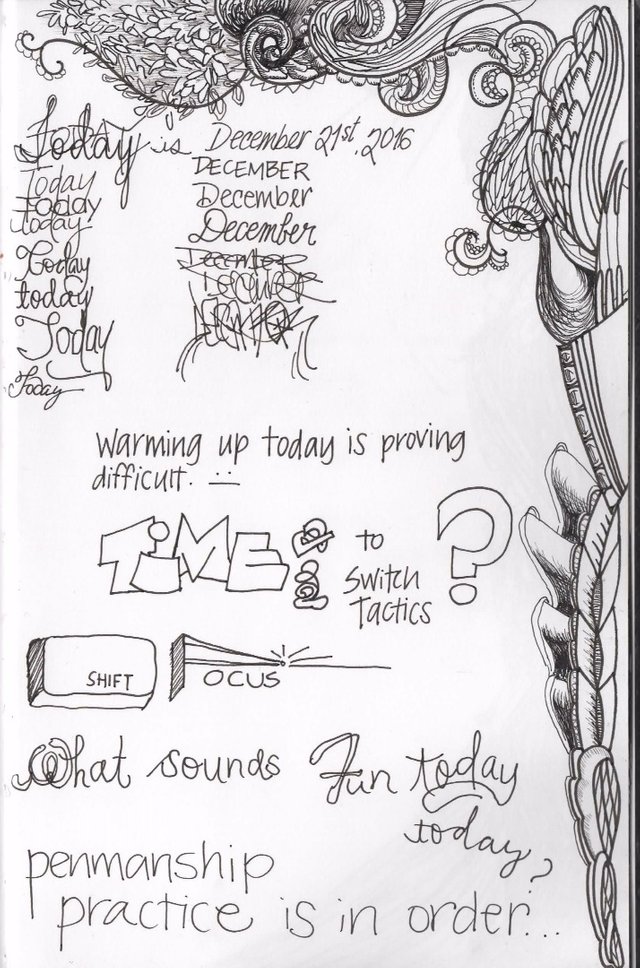 Today is December 21st, 2016
Today DECEMBER
Today December
Today December
Today December
today December
Today December
Today
warming up today is proving
difficult. :|
TiME to
Switch
Tactics ?
SHIFT FOCUS
What sounds Fun today
today?
penmanship
practice is in order...